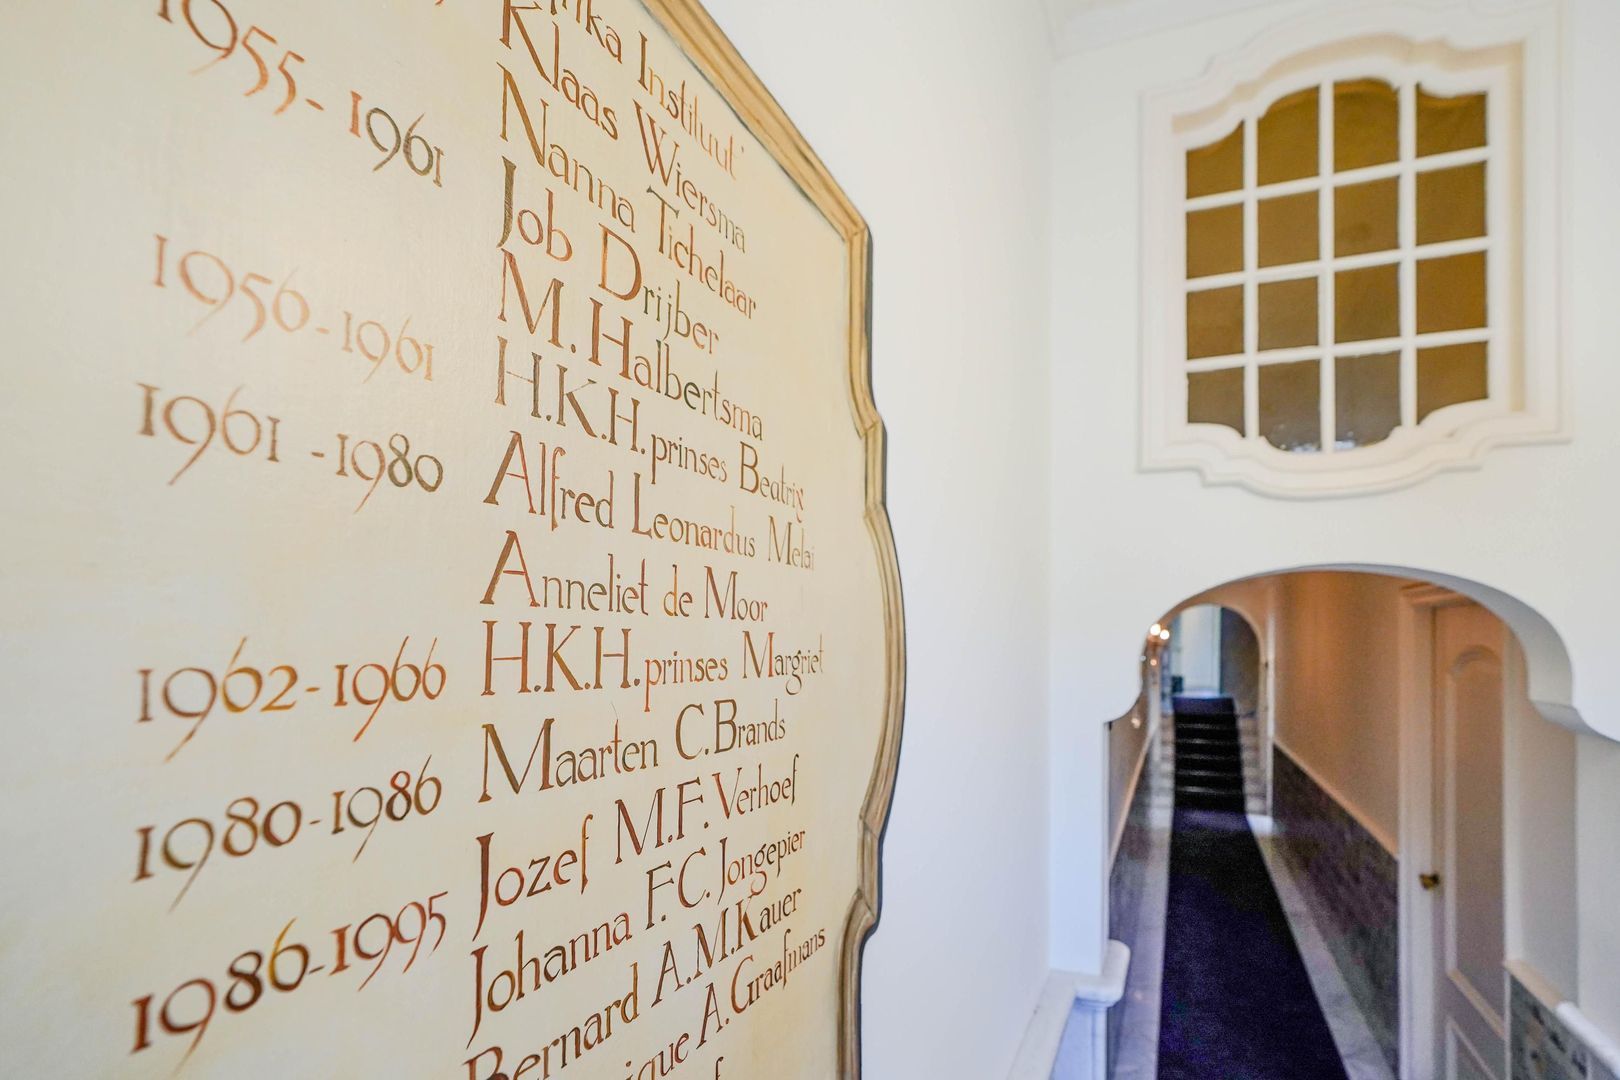 Instituut
Klaas Wiersma
1955-1961 Nanna Tichelaar
Job Drijber
1956-1961 M. Halbertsma
H.K.H. prinses Beatrix
1961-1980 Alfred Leonardus Melai
Anneliet de Moor
1962-1966 H.K.H. prinses Margriet
Maarten C. Brands
1980-1986 Jozef M.F. Verhoef
Johanna F.C. Jongepier
1986-1995 Bernard A.M. Kauer
A. Graafmans